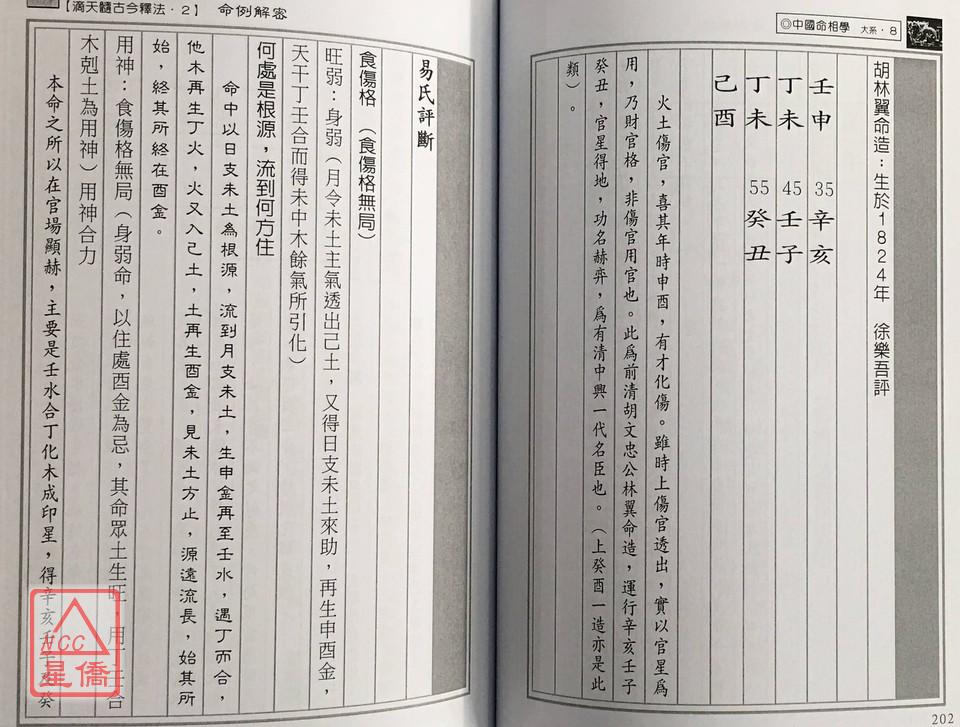 ◎中國命相學 大系・8
胡林翼命造：生於1824年 徐樂吾評
壬申 35辛亥
丁未 45壬子
丁未 55癸丑
己酉
火土傷官，喜其年時申酉，有才化傷。雖時上傷官透出，實以官星爲
用，乃財官格，非傷官用官也。此爲前清胡文忠公林翼命造，運行辛亥壬子
癸丑，官星得地，功名赫弈，爲有清中興一代名臣也。（上癸酉一造亦是此
類）。
202
【滴天髓古今釋法・2】 命例解密
易氏評斷
食傷格 （食傷格無局）
旺弱：身弱（月令未土主氣透出己土，又得日支未土來助，再生申酉金，
天干丁壬合而得未中木餘氣所引化）
何處是根源，流到何方住
命中以日支未土為根源，流到月支未土，生申金再至壬水，遇丁而合，
化木再生丁火，火又入己土，土再生酉金，見未土方止，源遠流長，始其所
始，終其所終在酉金。
用神：食傷格無局（身弱命，以住處酉金為忌，其命眾土生旺，用丁壬合
木剋土為用神）用神合力
本命之所以在官場顯赫，主要是壬水合丁化木成印星，得辛亥壬子癸
NCC
星僑